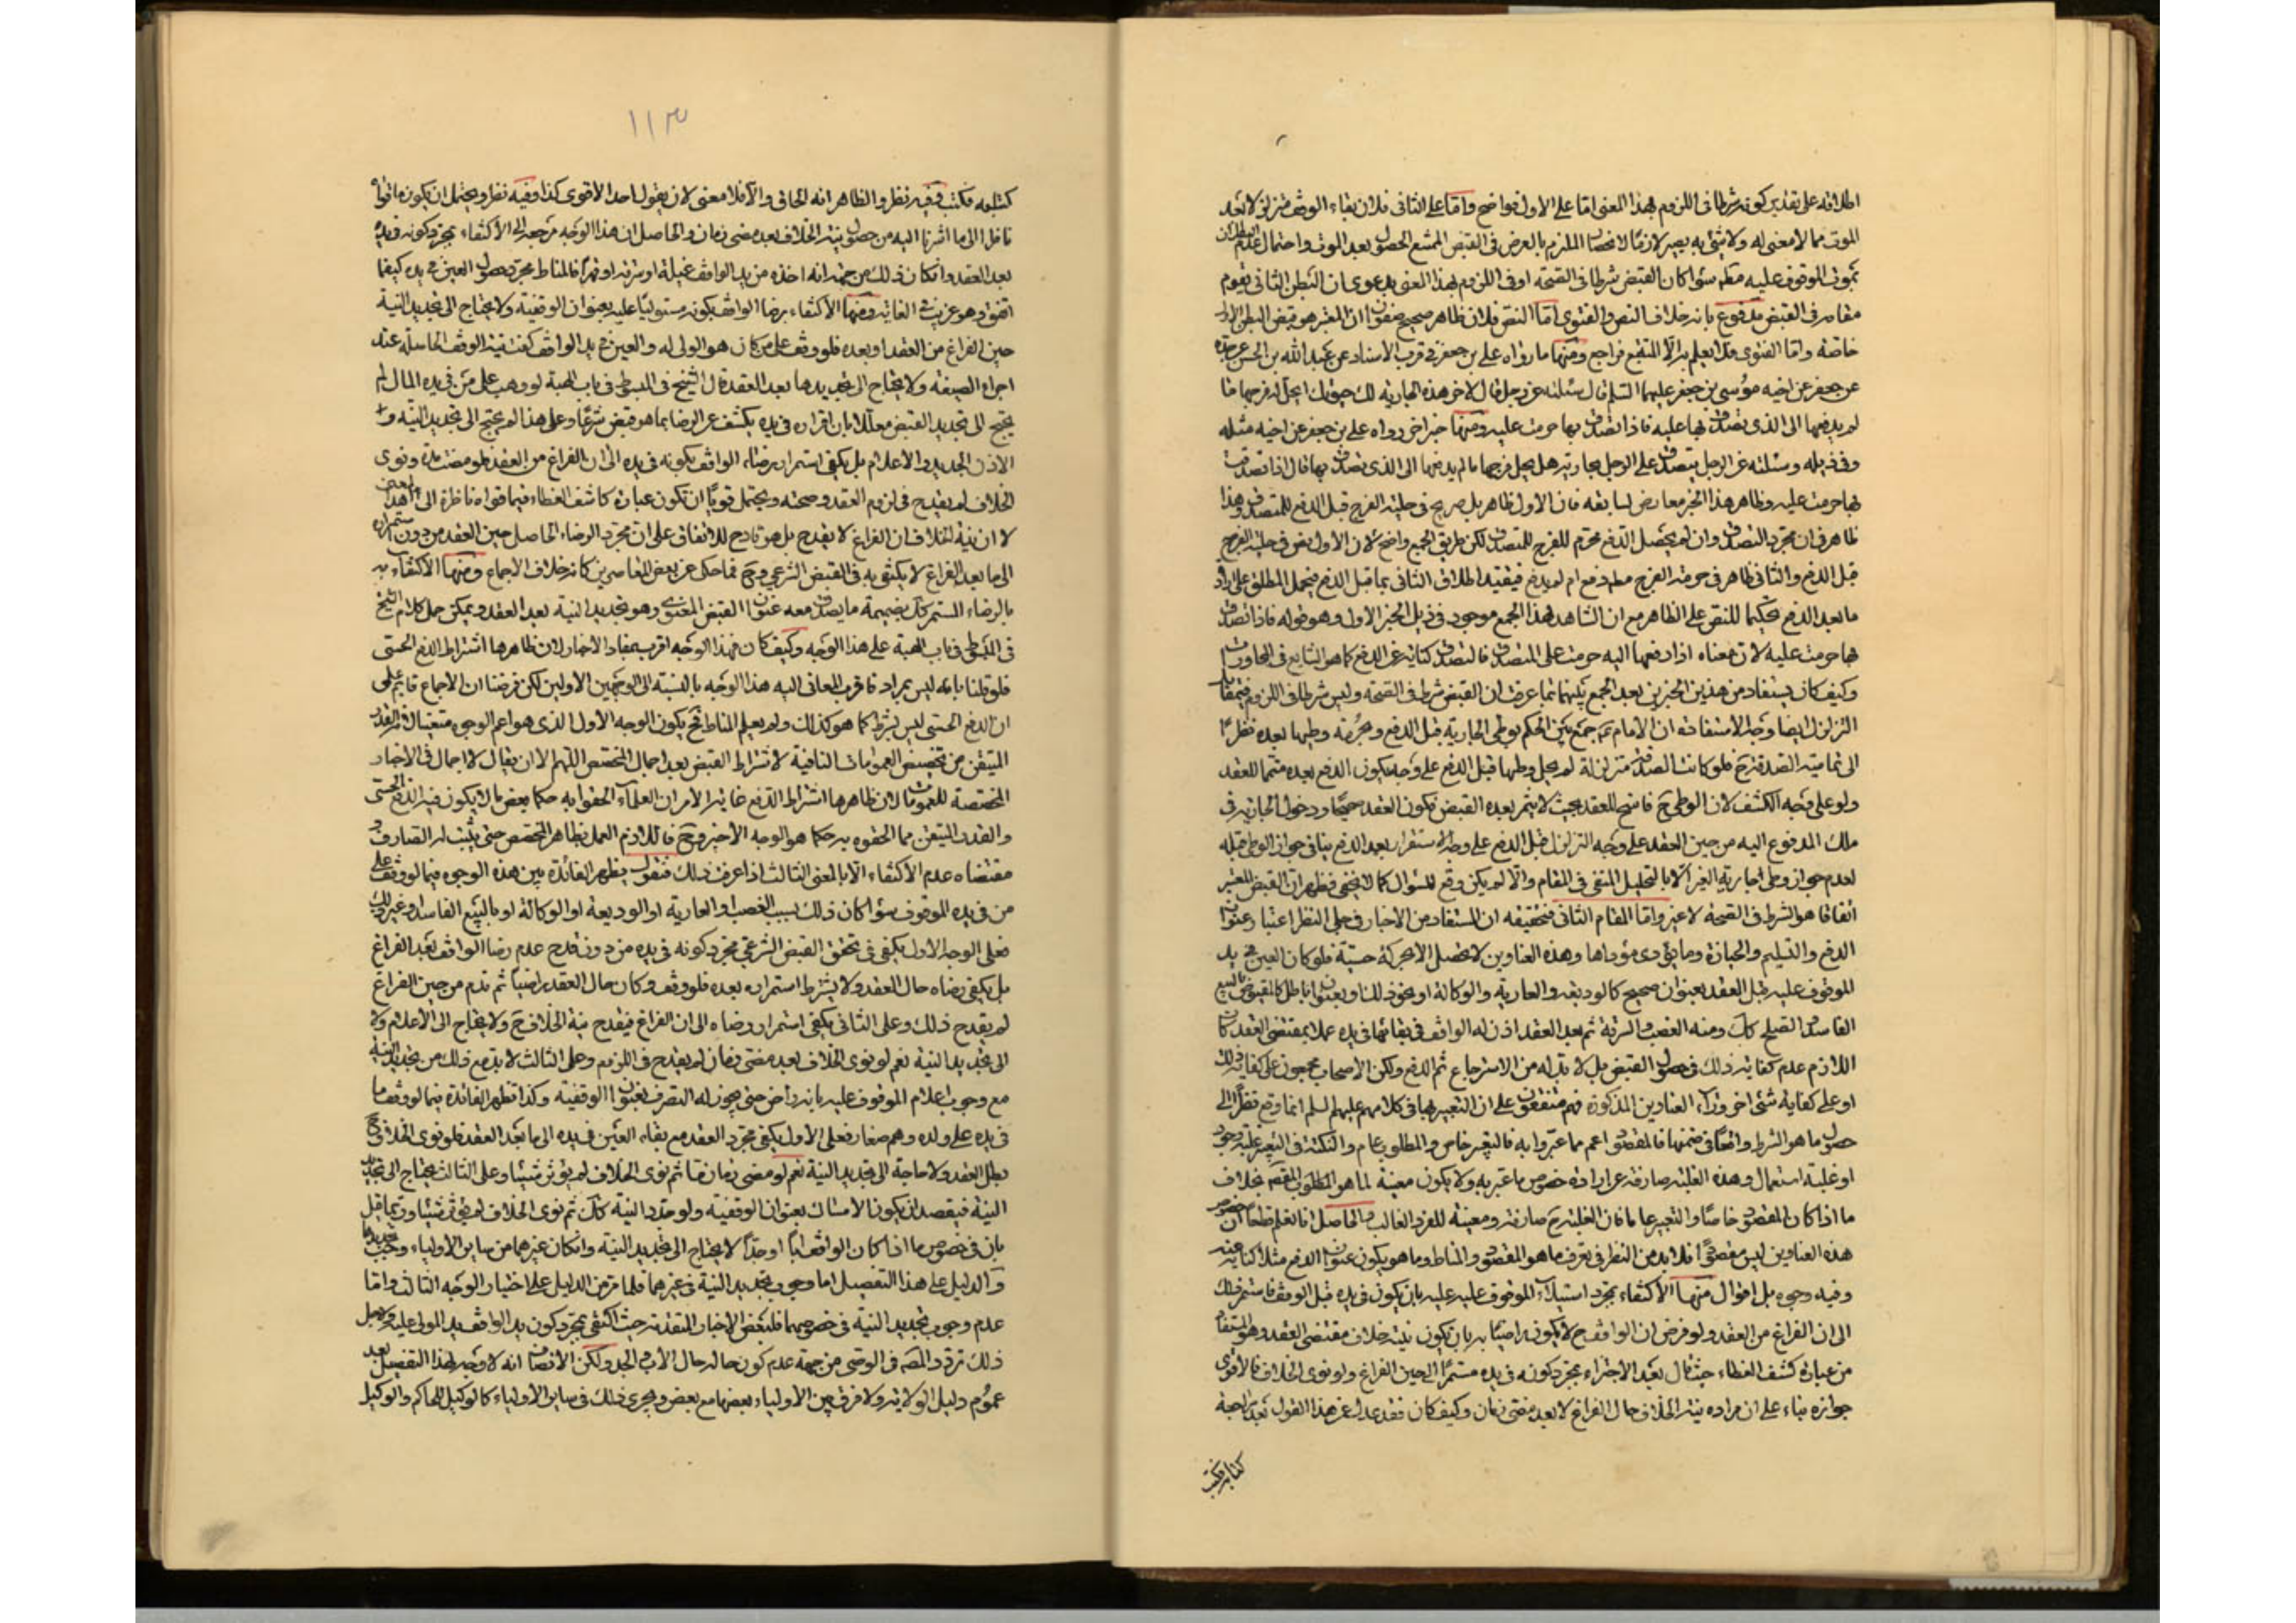 اطلاقه على تقدير كونه شرطا فى اللزوم بهذا المعنى امّا على الاول فواضح وامّا على الثانى فلان بقاء الوقف متزلزلا بعد
الموت مما لا معنى له ولا شئ به يصير لازمًا لانحصار الملزم بالعرض فى القبض الممتنع الحصول بعد الموت واحتمال عدم البطلان
بموت الموقوف عليه مطلقا سواء كان القبض شرطا فى الصحّة او فى اللزوم بهذا المعنى بدعوى ان البطن الثانى يقوم
مقامه فى القبض مدفوع بانه خلاف النص والفتوى امّا النصّ فلان ظاهر صحيح صفوان ان المعتبر هو قبض البطن الاول
خاصّة وامّا الفتوى فلا يعلم الا التتبع فراجع ومنها ما رواه على بن جعفر فى قرب الاسناد عن عبد الله بن الحسن عن جدّه
عن جعفر عن اخيه موسى بن جعفر عليهما السلم قال سئلته عن رجل قال لاخر هذه الجارية لك حيوتك ايحلّ له فرجها قا
لم يدفعها الى الذى تصدّق بها عليه فاذا تصدّق بها حرمت عليه ومنها خبر اخر رواه على بن جعفر عن اخيه مثله
وفى ذيله وسئلته عن الرجل يتصدّق على الرجل بجاريته هل يحلّ فرجها ما لم يدفعها الى الذى تصدّق بها قال اذا تصدّق
بها حرمت عليه وظاهر هذا الخبر معارض لسابقه فان الاول ظاهر بل صريح فى حلية الفرج قبل الدفع للمتصدّق وهذا
ظاهر فى ان مجرّد التصدّق وان لم يحصل الدفع محرّم للفرج للمتصدّق لكن طريق الجمع واضح لان الاول نص فى حلية الفرج
قبل الدفع والثانى ظاهر فى حرمة الفرج مطلقا دفع ام لم يدفع فيقيد اطلاق الثانى بما قبل الدفع فيحمل المطلق على ارادة
ما بعد الدفع تحكيما للنصّ على الظاهر مع ان الشاهد لهذا الجمع موجود فى ذيل الخبر الاول وهو قوله فاذا تصدّق
بها حرمت عليه لان معناه اذا دفعها اليه حرمت على المتصدّق فالتصدّق كناية عن الدفع كما هو الشايع فى المحاورات
وكيف كان يستفاد من هذين الخبرين بعد الجمع بينهما بما عرفت ان القبض شرط فى الصحّة وليس شرطا فى اللزوم
التزلزل ايضا وجه الاستفادة ان الامام ع جمع بين الحكم بوطى الجارية قبل الدفع وحرمة وطيها بعده نظرًا
الى تمامية الصدقة ح فلو كانت الصدقة متزلزلة لم يحل وطيها قبل الدفع على وجه يكون الدفع بعده متمّما للعقد
ولو على وجه الكشف لان الوطى ح فاسخ للعقد بحيث لا يثمر بعده القبض فكون العقد صحيحًا ودخول الجارية فى
ملك المدفوع اليه من حين العقد على وجه التزلزل قبل الدفع على وجه الاستقرار بعد الدفع ينافى جواز الوطى قبله
لعدم جواز وطى جارية الغير الا بالتحليل المنتفى فى المقام والّا لم يكن وقع للسؤال كما لا يخفى فظهر ان القبض المعتبر
اتفاقا هو الشرط فى الصحّة لا غير وامّا المقام الثانى فتحقيقه ان المستفاد من الاخبار فى جلى النظر اعتبار عنوان
الدفع والتسليم والحيازة وما يؤدى مؤداها وهذه العناوين لا تحصل الا بحركة حسيّة فلو كان العين فى يد
الموقوف عليه قبل العقد بعنوان صحيح كالوديعة والعارية والوكالة او نحو ذلك او بعنوان باطل كالمقبوض بالبيع
الفاسد او الصلح كك ومنه الغصب والسرقة ثم بعد العقد اذن له الواقف فى بقائها فى يده عملا بمقتضى العقد كان
اللازم عدم كفاية ذلك فى حصول القبض بل لا بدّ له من الاسترجاع ثم الدفع ولكن الاصحاب مجمعون على كفاية ذلك
او على كفاية شئ اخر وراء العناوين المذكورة فهم متفقون على ان التعبير بها فى كلامهم عليهم السلم انما وقع نظرًا الى
حصول ما هو الشرط واقعًا فى ضمنها فالمقصود اعم مما عبّروا به فالتعبير خاص والمطلوب عام والنكتة فى التعبير غلبة وجود
او غلبة استعمال وهذه الغلبة صارفة عن ارادة خصوص ما عبّر به ولا يكون معينة لما هو المطلوب المقصود بخلاف
ما اذا كان المقصود خاصًّا والتعبير عاما فان الغلبة ح صارفة ومعينة للفرد الغالب والحاصل انا نعلم قطعا ان خصوص
هذه العناوين ليس مقصودًا فلا بد من النظر فى تعرف ما هو المقصود والمناط وما هو يكون عنوان الدفع مثلا كناية عنه
وفيه وجوه بل اقوال منها الاكتفاء بمجرد استيلاء الموقوف عليه عليه بان يكون فى يده قبل الوقف فاستمر ذلك
الى ان الفراغ من العقد ولو فرض ان الواقف ح لا يكون راضيًا به بان تكون نيته خلاف مقتضى العقد وهو المستفاد
من عبارة كشف الغطاء حيث قال بعد الاجتزاء بمجرد كونه فى يده مستمرًّا الى حين الفراغ ولو نوى الخلاف فالاقوى
جوازه بناء على ان مراده بنية الخلاف حال الفراغ لا بعد مضى زمان وكيف كان فقد عدل عن هذا القول بعد مراجعة
كتابه فكتب
١١٣
كتابه فكتب ففيه نظر والظاهر انه الحاقى والّا فلا معنى لان يقول احد الاقوى كذا وفيه نظر ويحتمل ان يكون ما قواه
ناظرا الى ما اشرنا اليه من حصول نية الخلاف بعد مضى زمان والحاصل ان هذا الوجه مرجعه الى الاكتفاء بمجرد كونه فى يده
بعد العقد وان كان ذلك من جهة انه اخذه من يد الواقف غيلة او سرقة او قهرًا فالمناط مجرّد حصول العين فى يده كيفما
اتفق وهو غريب فى الغاية ومنها الاكتفاء برضا الواقف بكونه مستوليًا عليه بعنوان الوقفية ولا يحتاج الى تجديد النية
حين الفراغ من العقد او بعده فلو وقف على من كان هو الولى له والعين فى يد الواقف كفت نية الوقف الحاصلة عند
اجراء الصيغة ولا يحتاج الى تجديدها بعد العقد قال الشيخ فى المبسوط فى باب الهبة لو وهب على من فى يده المال لم
يحتج الى تجديد القبض معللا بان اقراره فى يده يكشف عن الرضا بما هو قبض شرعًا وعلى هذا لم يحتج الى تجديد النية و
الاذن الجديد والاعلام بل يكفى استمرار رضاء الواقف بكونه فى يده الى ان الفراغ من العقد فلو مضت مدة ونوى
الخلاف لم يقدح فى لزوم العقد وصحته ويحتمل قويًّا ان تكون عبارة كاشف الغطاء فيما قواه ناظرة الى هذا المعنى
لا ان نية الخلاف ان الفراغ لا يقدح بل هو قادح للاتفاق على ان مجرّد الرضاء الحاصل حين العقد من دون استمراره
الى ما بعد الفراغ لا يكتفى به فى القبض الشرعى وح فما حكى عن بعض المعاصرين كانه خلاف الاجماع ومنها الاكتفاء به
بالرضاء المستمر كك بضميمة ما يصدق معه عنوان القبض المعتبر وهو تجديد النية بعد العقد ويمكن حمل كلام الشيخ
فى المبسوط فى باب الهبة على هذا الوجه وكيف كان فهذا الوجه اقرب بمفاد الاخبار لان ظاهرها اشتراط الدفع الحسّى
فلو قلنا بانه ليس بمراد فاقرب المعانى اليه هذا الوجه بالنسبة الى الوجهين الاولين لكن فرضنا ان الاجماع قايم على
ان الدفع الحسّى ليس بشرط كما هو كذلك ولم يعلم المناط فح يكون الوجه الاول الذى هو اعم الوجوه متعينا لانه القدر
المتيقن من تخصيص العمومات النافية لاشتراط القبض بعد اجمال المخصص اللهم الا ان يقال لا اجمال فى الاخبار
المخصّصة للعمومات لان ظاهرها اشتراط الدفع غاية الامر ان العلماء الحقوا به حكما بعض ما لا يكون فيه الدفع الحسّى
والقدر المتيقن مما الحقوه به حكما هو الوجه الاخير وح فاللازم العمل بظاهر المخصص حتى يثبت له الصارف و
مقتضاه عدم الاكتفاء الا بالمعنى الثالث اذا عرفت ذلك فنقول يظهر الفائدة بين هذه الوجوه فيما لو وقف على
من فى يده الموقوف سواء كان ذلك بسبب الغصب او العارية او الوديعة او الوكالة او بالبيع الفاسد او غير ذلك
فعلى الوجه الاول يكفى فى تحقق القبض الشرعى مجرّد كونه فى يده من دون قدح عدم رضا الواقف بعد الفراغ
بل يكفى رضاه حال العقد ولا يشترط استمراره بعده فلو وقف وكان حال العقد راضيًا ثم ندم من حين الفراغ
لم يقدح ذلك وعلى الثانى يكفى استمرار رضاه الى ان الفراغ فيقدح نية الخلاف ح ولا يحتاج الى الاعلام ولا
الى تجديد النية نعم لو نوى الخلاف بعد مضى زمان لم يقدح فى اللزوم وعلى الثالث لا بد مع ذلك من تجديد النية
مع وجوب اعلام الموقوف عليه بانه راض حتى يجوز له التصرف بعنوان الوقفية وكذا تظهر الفائدة فيما لو وقف ما
فى يده على ولده وهم صغار فعلى الاول يكفى مجرّد العقد مع بقاء العين فى يده الى ما بعد العقد فلو نوى الخلاف ح
بطل العقد ولا حاجة الى تجديد النية نعم لو مضى زمان ما ثم نوى الخلاف لم يؤثر شيئا وعلى الثالث يحتاج الى تجديد
النية فيقصد ان يكون الامساك بعنوان الوقفية ولو جدد النية كك ثم نوى الخلاف لم يؤثر شيئا وربّما قيل
بان فى خصوص ما اذا كان الواقف ابًا او جدًّا لا يحتاج الى تجديد النية وان كان غيرهما من ساير الاولياء وجب تجديدها
والدليل على هذا التفصيل اما وجوب تجديد النية فى غيرهما فلما مرّ من الدليل على اختيار الوجه الثالث وامّا
عدم وجوب تجديد النية فى خصوصهما فلبعض الاخبار المتقدمة حيث اكتفى بمجرّد كون يد الواقف يد المولى عليه ولعل
ذلك تردّد المصّ فى الوصى من جهة عدم كون حاله حال الاب والجد ولكن الانصاف انه لا وجه لهذا التفصيل بعد
عموم دليل الولاية ولا فرق بين الاولياء بعضها مع بعض ويجرى ذلك فى ساير الاولياء كالوكيل للحاكم والوكيل